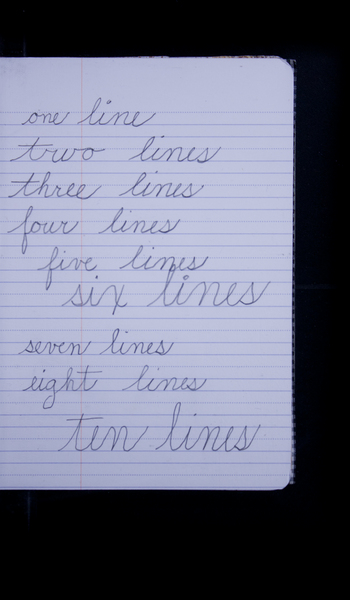 one line
two lines
three lines
four lines
five lines
six lines
seven lines
eight lines
ten lines